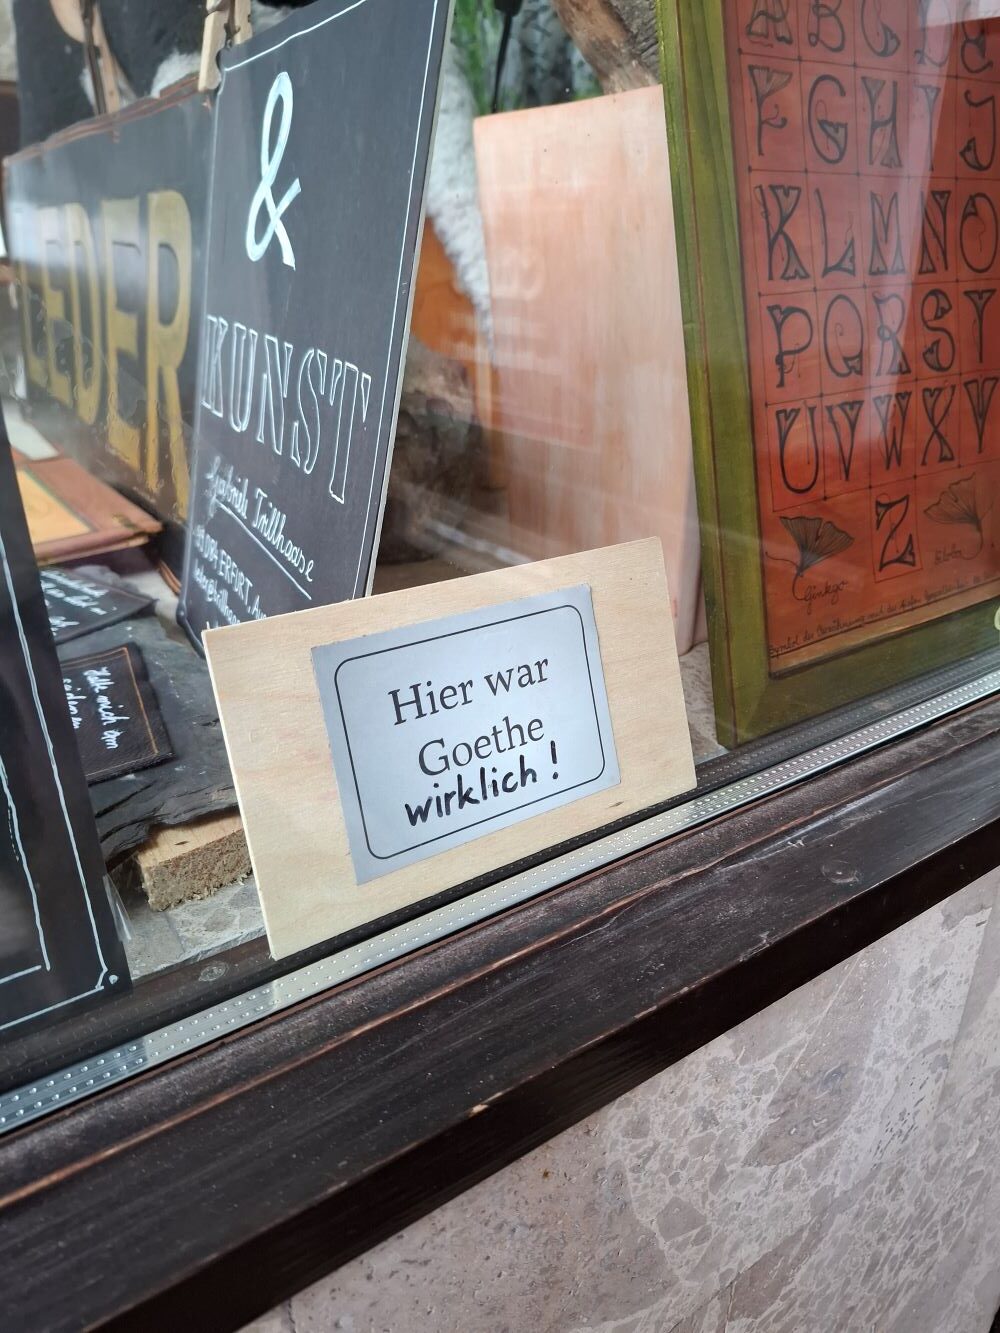 LEDER
&
KUNST
Trillhaase
ERFURT
Hier war
Goethe
wirklich !
A B C D E
F G H I J
K L M N O
P Q R S T
U V W X Y
Z
Ginkgo
Biloba